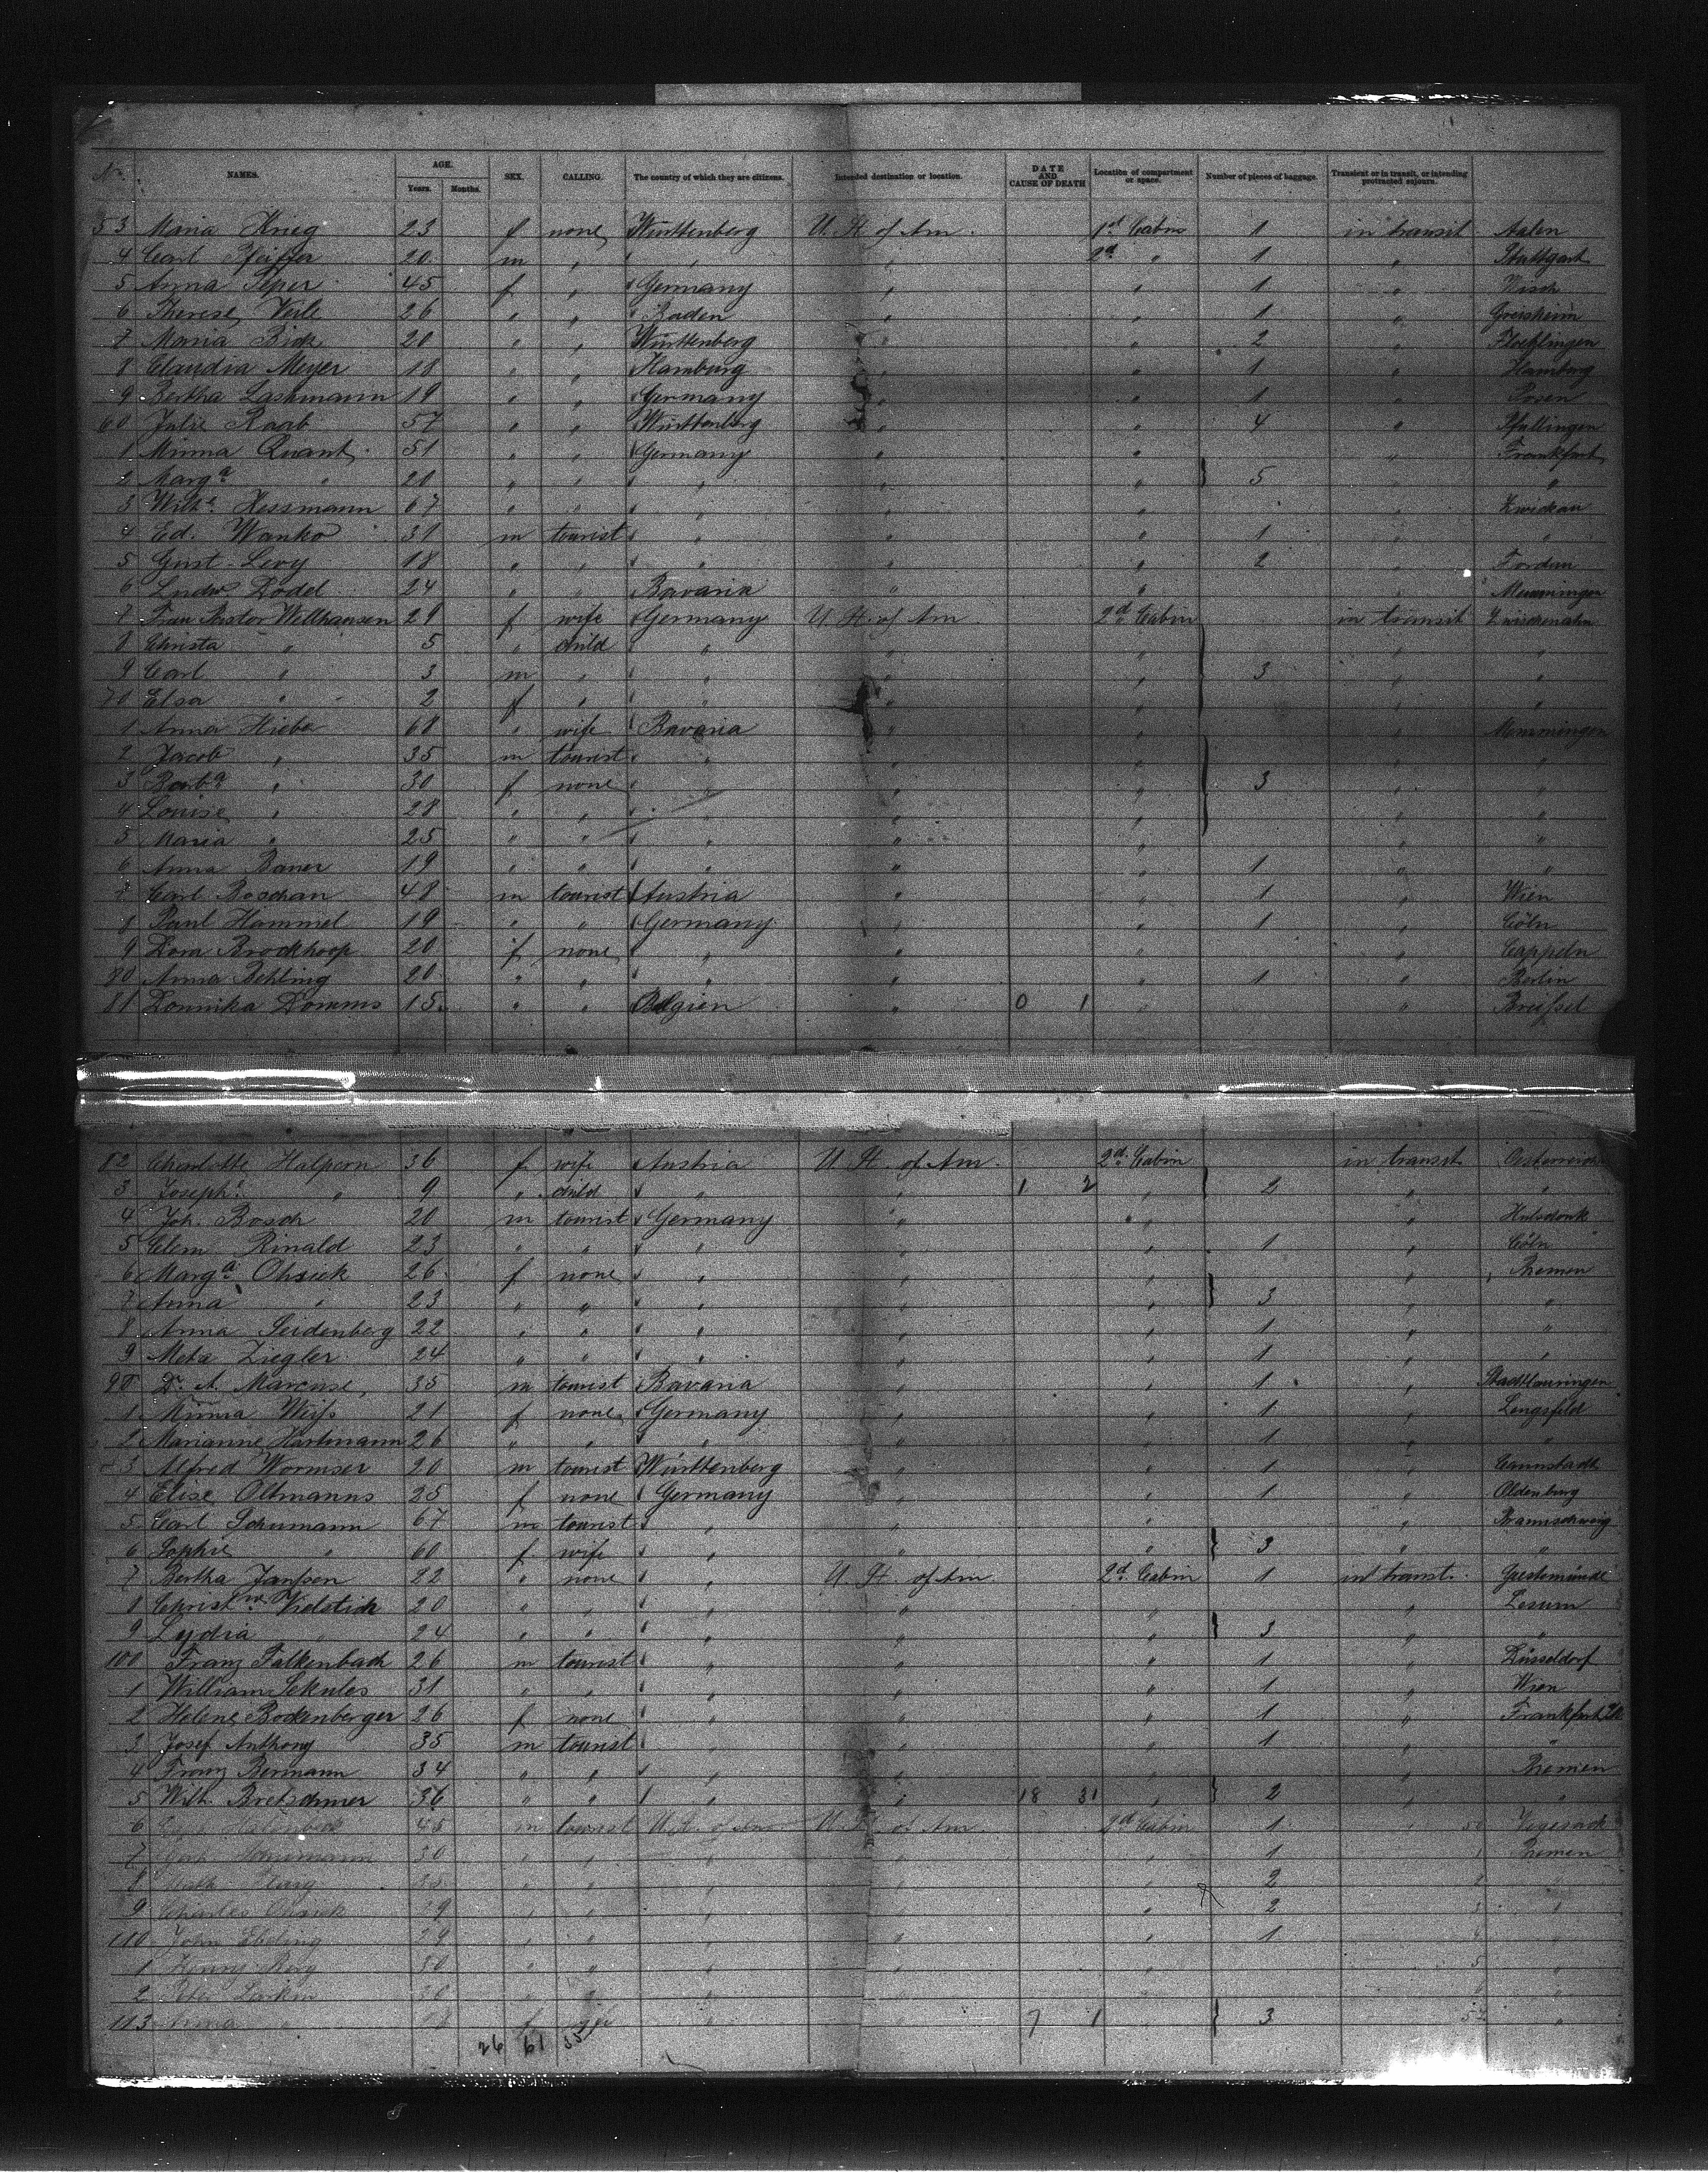 No. NAMES. AGE. Years. Months. SEX. CALLING. The country of which they are citizens. Intended destination or location. DATE AND CAUSE OF DEATH Location of compartment or space. Number of pieces of baggage. Transient or in transit, or intending protracted sojourn.
53 Maria Krieg 23 f none Württenberg U. St. of Am. 1st Cabin 1 in transit Aalen
4 Carl Pfeiffer 20 m " " " 2d " 1 " Stuttgart
5 Anna Peper 45 f " Germany " " 1 "
6 Therese Veile 26 " " Baden " " 1 " Griesheim
7 Maria Bick 20 " " Württenberg " " 2 "
8 Claudia Meyer 18 " " Hamburg " " 1 " Hamburg
9 Bertha Laskmann 19 " " Germany " " 1 " Posen
60 Julie Raab 57 " " Württenberg " " 4 " Pfullingen
1 Minna Quant 51 " " Germany " " " Frankfurt
2 Marga " 20 " " " " " 5 " "
3 Wilhe Hessmann 67 " " " " " " Zwickau
4 Ed. Wanko 31 m tourist " " " 1 " "
5 Gust. Levy 18 " " " " " 2 " Fordon
6 Ludw. Dodel 24 " " Bavaria " " " Memmingen
7 Frau Pastor Wellhausen 29 f wife Germany U. St. of Am. 2d Cabin in transit Zwischenahn
8 Christa " 5 " child " " " " "
9 Carl " 3 m " " " " 3 " "
70 Elsa " 2 f " " " " " "
1 Anna Hieber 68 " wife Bavaria " " " Memmingen
2 Jacob " 35 m tourist " " " " "
3 Barba " 30 f none " " " 3 " "
4 Louise " 28 " " " " " " "
5 Maria " 25 " " " " " " "
6 Anna Baner 19 " " " " " 1 " "
7 Carl Boschan 48 m tourist Austria " " 1 " Wien
8 Paul Hammel 19 " " Germany " " 1 " Cöln
9 Dora Brockhoop 20 f none " " " " Cappeln
80 Anna Behling 20 " " " " " 1 " Berlin
81 Domnika Domms 15 " " Belgien " 0 1 " " Brüssel
82 Charlotte Halpern 36 f wife Austria U. St. of Am. 2d Cabin in transit Oesterreich
3 Josephe " 9 " child " " 1 2 " 2 " "
4 Joh. Bosch 20 m tourist Germany " " " Hulsdonk
5 Clem Rinald 23 " " " " " 1 " Cöln
6 Marga Ohsiek 26 f none " " " " Bremen
7 Anna " 23 " " " " " 3 " "
8 Anna Seidenberg 22 " " " " " 1 " "
9 Meta Ziegler 24 " " " " " 1 " "
90 Dr. A. Marcuse 35 m tourist Bavaria " " 1 " Stadtlauringen
1 Minna Weiß 21 f none Germany " " 1 " Lengsfeld
2 Marianne Hartmann 26 " " " " " 1 " "
3 Alfred Wormser 20 m tourist Württenberg " " 1 " Cannstadt
4 Elise Oltmanns 25 f none Germany " " 1 " Oldenburg
5 Carl Schumann 67 m tourist " " " " Braunschweig
6 Sophie " 60 f wife " " " 3 " "
7 Bertha Janßen 22 " none " U. St. of Am. 2d Cabin 1 in transit. Geestemünde
8 Christne Vielstich 20 " " " " " " Lesum
9 Lydia " 24 " " " " " 3 " "
100 Franz Falkenbach 26 m tourist " " " 1 " Düsseldorf
1 William Sekules 31 " " " " " 1 " Wien
2 Helene Bodenberger 26 f none " " " 1 " Frankfurt
3 Josef Anthony 35 m tourist " " " 1 " "
4 Franz Bermann 34 " " " " " " Bremen
5 Wilh. Bretschner 36 " " " " 18 31 " 2 " "
6 45 m tourist U. St. of Am. U. St. of Am. 2d Cabin 1 " 50 Vegesack
7 30 " " " " " 1 1 Bremen
8 " " " " " 2 2 "
9 Charles Ohsiek 29 " " " " " 2 3 "
110 John Ebeling 29 " " " " " 1 4 "
1 Henry 50 " " " " " 5 "
2 Peter Larkin 30 " " " " " "
113 Anna " f wife " " 7 1 " 3 "
26 61 35